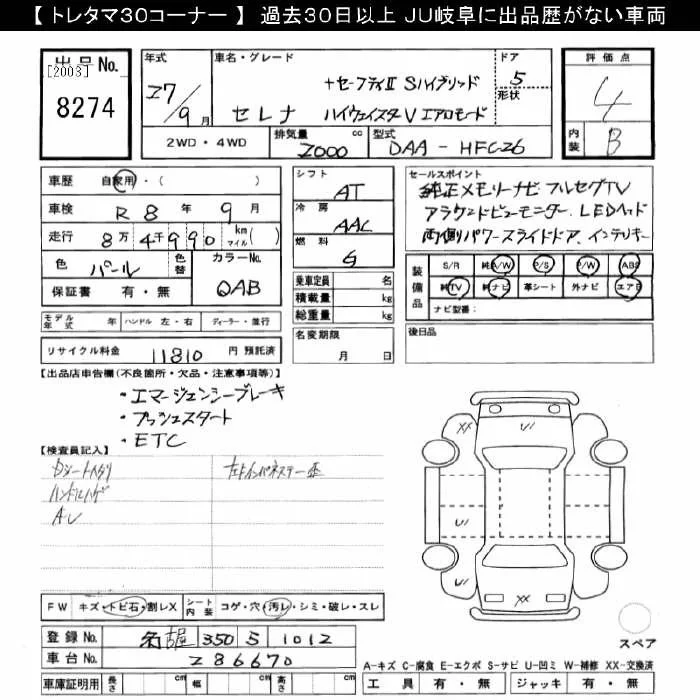 【 トレタマ30コーナー 】 過去30日以上 JU岐阜に出品歴がない車両
出品No. 年式 車名・グレード ドア 評価点
[2003] +セーフティⅡ Sハイブリッド 5 形状
8274 27/9月 セレナ ハイウェイスターV エアロモード 4
2WD・4WD 排気量 2000 cc 型式 DAA-HFC26 内装 B
車歴 自家用・( ) シフト AT セールスポイント
車検 R 8 年 9 月 冷房 AAC 純正メモリーナビ フルセグTV
走行 8万 4千990 km マイル( ) 燃料 G アラウンドビューモニター.LEDヘッド
両側パワースライドドア.インテリキー
色 パール 色替 カラーNo. QAB
保証書 有・無
乗車定員 名 装備品 S/R 純A/W P/S P/W ABS
積載量 kg 純TV 純ナビ 革シート 外ナビ エアB
総重量 kg ナビ型番:
モデル年式 年 ハンドル 左・右 ディーラー・並行
名変期限 月 日 後日品
リサイクル料金 11810 円 預託済
【出品店申告欄(不良箇所・欠品・注意事項等)】
・エマージェンシーブレーキ
・プッシュスタート
・ETC
【検査員記入】
ハンドルハゲ
XX U
U
U
XX
FW キズ・トビ石・割レX シート内装 コゲ・穴・汚レ・シミ・破レ・スレ
登録No. 名古屋 350 S 1012
車台No. 286670
スペア
A-キズ C-腐食 E-エクボ S-サビ U-凹ミ W-補修 XX-交換済
車庫証明用 長さ cm 幅 cm 高さ cm 工具 有・無 ジャッキ 有・無